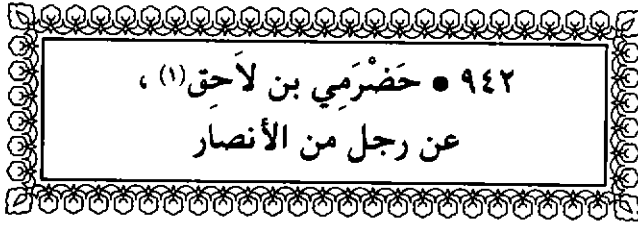 ٩٤٢ • حَضْرَمِي بن لاَحِق(١) ،
عن رجل من الأنصار